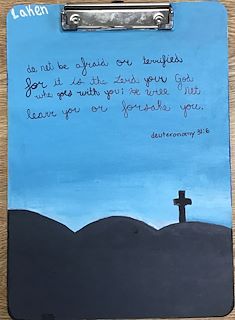 Laken
do not be afraid or terrified
for it is the Lord your God
who goes with you; he will not
leave you or forsake you.
deuteronomy 31:6